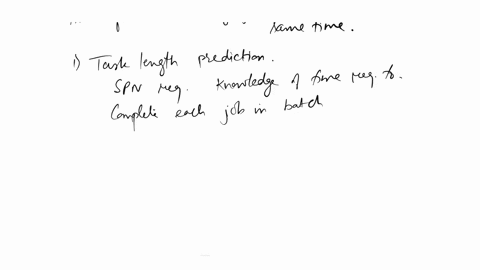 same time.
1) Task length prediction.
SPN req. knowledge of time req. to.
Complete each job in batch